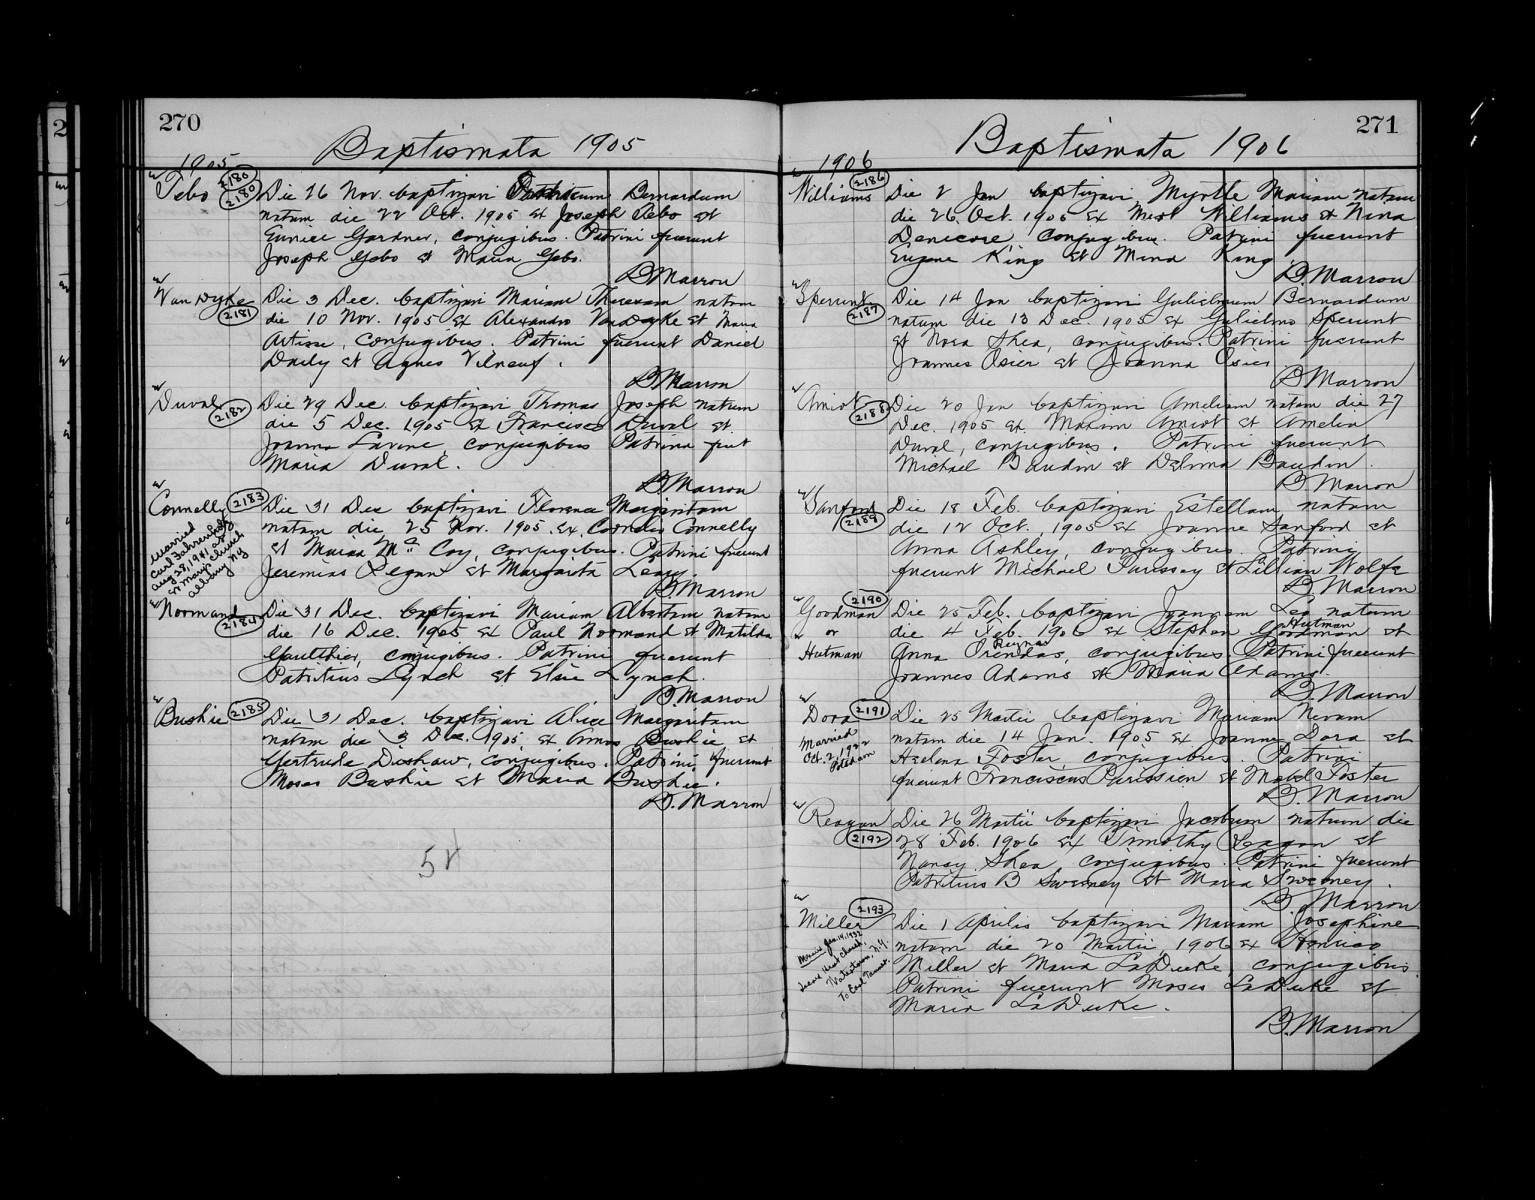 270
Baptismata 1905
1905
Tebo 2180
2180
Die 26 Nov. baptizavi Bernardum
natum die 22 Oct. 1905 ex Joseph Tebo et
Eunice Gardner, conjugibus. Patrini fuerunt
Joseph Gebo et Maria Gebo.
B Marron
Van Dyke
2181
Die 3 Dec. baptizavi Mariam Theresam natam
die 10 Nov. 1905 ex Alexandro Van Dyke et Maria
conjugibus. Patrini fuerunt Daniel
Daily et Agnes
B Marron
Duval
2182
Die 29 Dec. baptizavi Thomas Joseph natum
die 5 Dec. 1905 ex Francisco Duval et
Joanna Lavine conjugibus Patrina fuit
Maria Duval.
B Marron
Connelly 2183
Married
Carl Fahrenholz
Aug 28, 1941 at
St Marys church
Albany NY
Die 31 Dec baptizavi Florence Margaritam
natam die 25 Nov. 1905 ex Cornelio Connelly
et Maria McCoy, conjugibus. Patrini fuerunt
Jeremias Regan et Margarita Leary.
B Marron
Normand
2184
Die 31 Dec. baptizavi Mariam Albertam natam
die 16 Dec. 1905 ex Paul Normand et Matilda
Gauthier, conjugibus. Patrini fuerunt
Patritius Lynch et Elsie Lynch.
B Marron
Bushie 2185
Die 31 Dec. baptizavi Alice Margaritam
natam die 3 Dec. 1905, ex Amos Bushie et
Gertrude Dishaw, conjugibus. Patrini fuerunt
Moses Bushie et Maria Bushie.
B. Marron
54
271
Baptismata 1906
1906
Williams 2186
Die 2 Jan baptizavi Myrtle Mariam natam
die 26 Oct. 1905 ex Williams et Nina
conjugibus. Patrini fuerunt
Eugene King et Mina King
B. Marron
Sperunt
2187
Die 14 Jan baptizavi Gulielmum Bernardum
natum die 13 Dec. 1905 ex Gulielmo Sperunt
et Nora Shea, conjugibus. Patrini fuerunt
Joannes Osier et Joanna Osier
B Marron
Amiot
2188
Die 20 Jan baptizavi Ameliam natam die 27
Dec. 1905 ex Maxim Amiot et Amelia
Duval, conjugibus. Patrini fuerunt
Michael Baudin et Delima Baudin.
B Marron
Sanford
2189
Die 18 Feb. baptizavi Estellam natam
die 12 Oct. 1905 ex Joanne Sanford et
Anna Ashley, conjugibus. Patrini
fuerunt Michael Parissay et Lillian Wolfe
B Marron
2190
Goodman
or
Hutman
Die 25 Feb. baptizavi Joannem Leo natum
die 4 Feb. 1906 ex Stephen Goodman et
Hutman
Anna conjugibus. Patrini fuerunt
Joannes Adams et Maria Adams.
B. Marron
Dora 2191
Married
Oct. 2, 1922
Potsdam
Die 25 Martii baptizavi Mariam Nevam
natam die 14 Jan. 1905 ex Joanne Dora et
Helena Foster, conjugibus. Patrini
fuerunt Franciscus Parissien et Mabel Foster
B. Marron
Reagan
2192
Die 26 Martii baptizavi Jacobum natum die
28 Feb. 1906 ex Timothy Reagan et
Nancy Shea, conjugibus. Patrini fuerunt
Patritius B Sweeney et Maria Sweeney.
B. Marron
2193
Miller
Church,
Watertown, N.Y.
To Earl
Die 1 Aprilis baptizavi Mariam Josephine
natam die 20 Martii, 1906 ex Henrico
Miller et Maria LaDuke, conjugibus.
Patrini fuerunt Moses LaDuke et
Maria LaDuke.
B. Marron